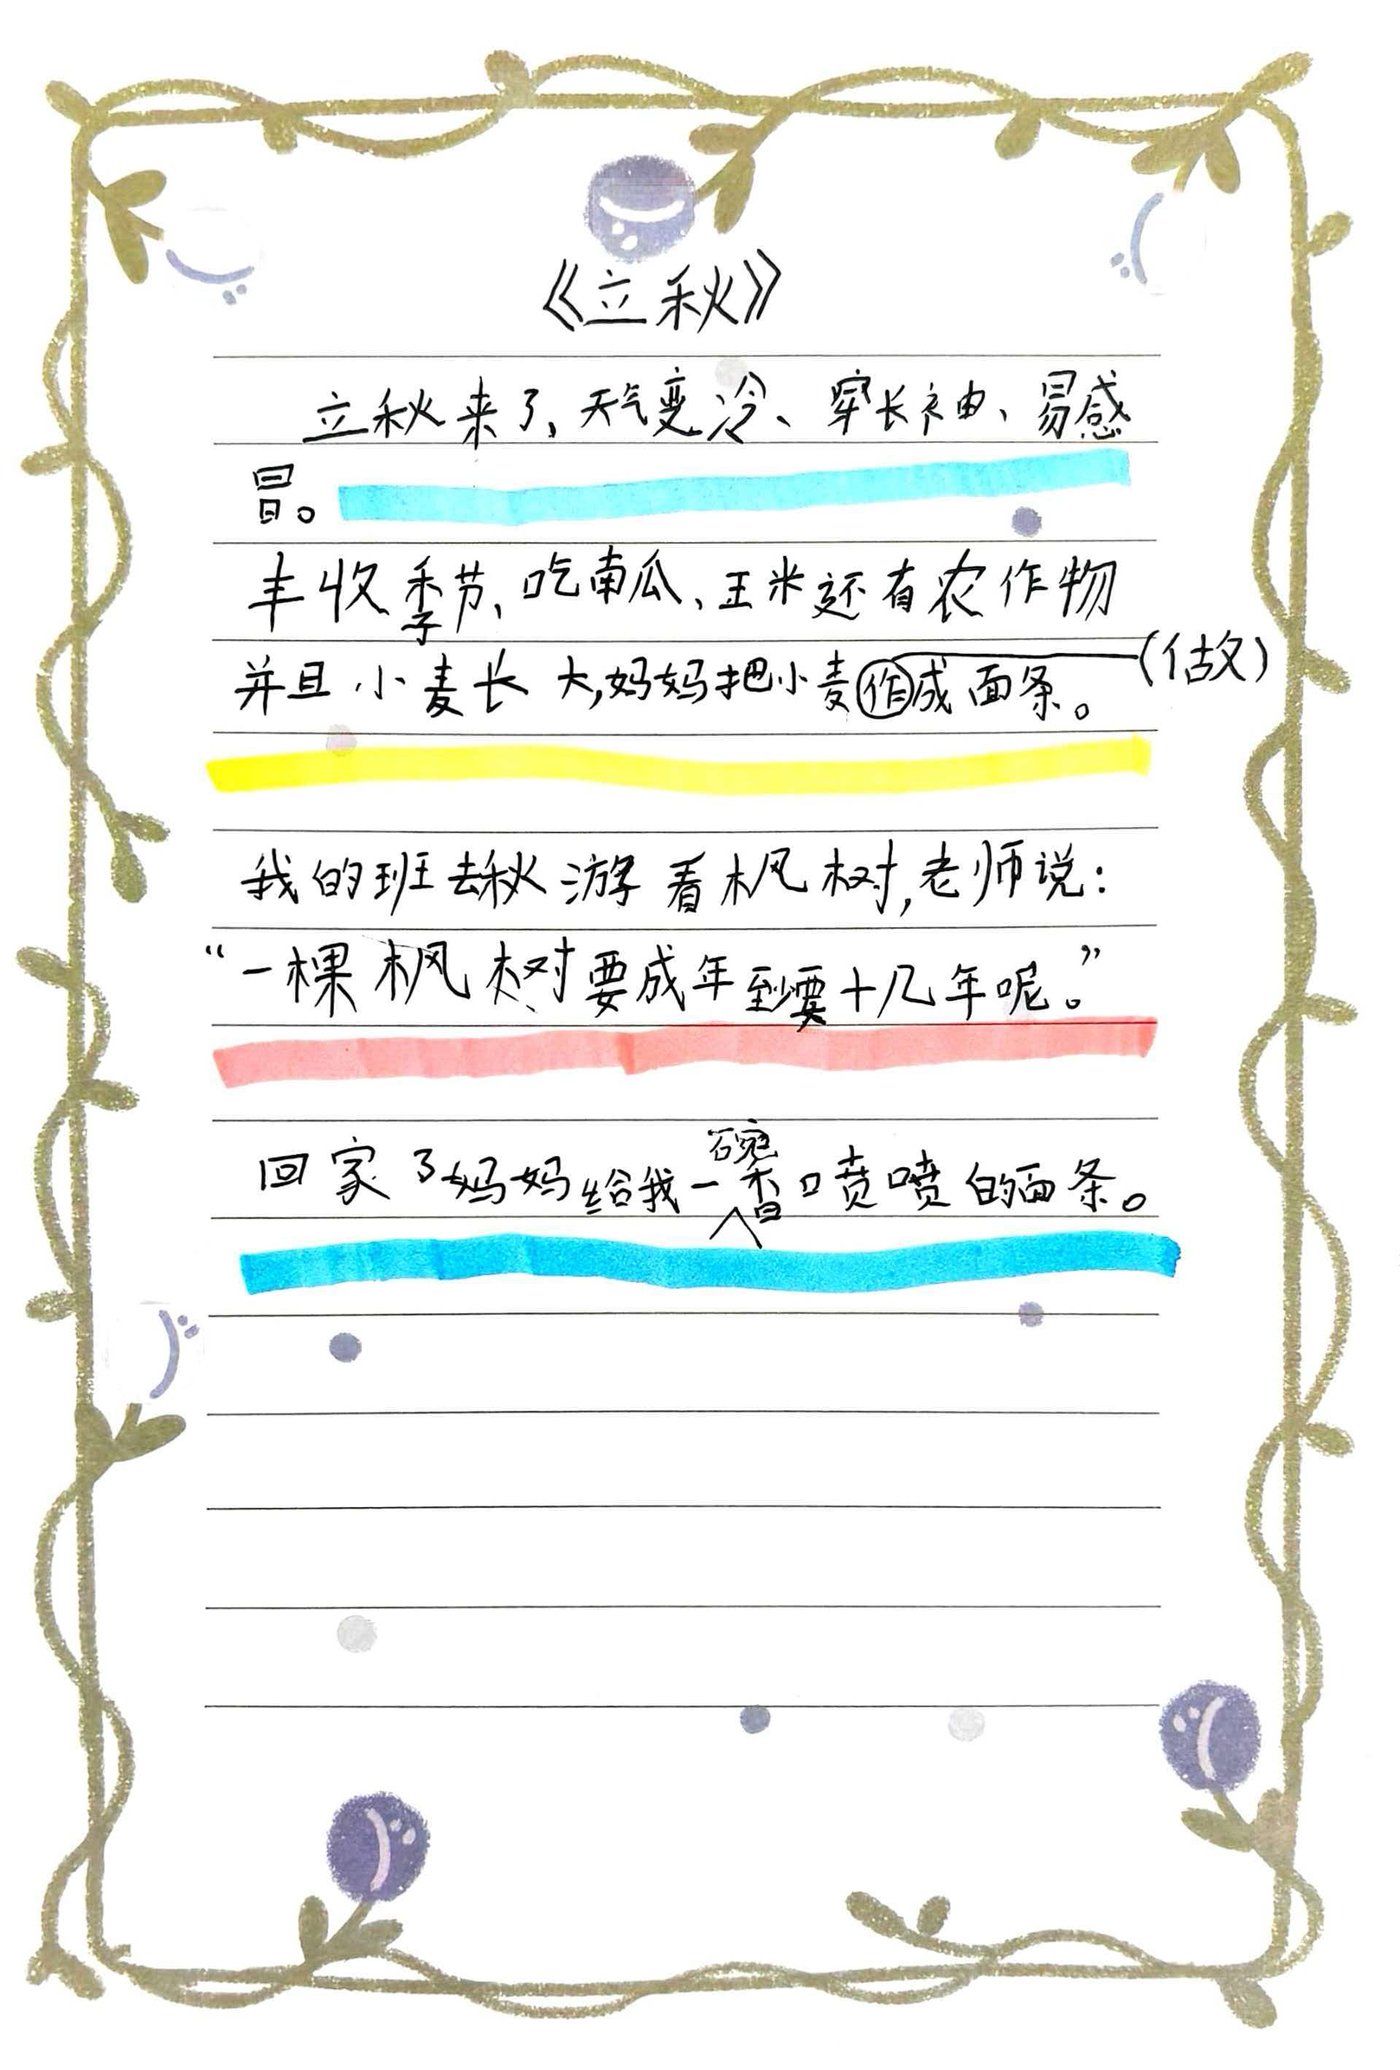 《立秋》
立秋来了、天气变冷、穿长袖、易感
冒。
丰收季节、吃南瓜、玉米还有农作物
并且小麦长大,妈妈把小麦作成面条。(做)
我的班去秋游看枫树,老师说:
“一棵枫树要成年至少要十几年呢。”
回家了妈妈给我一碗香喷喷的面条。